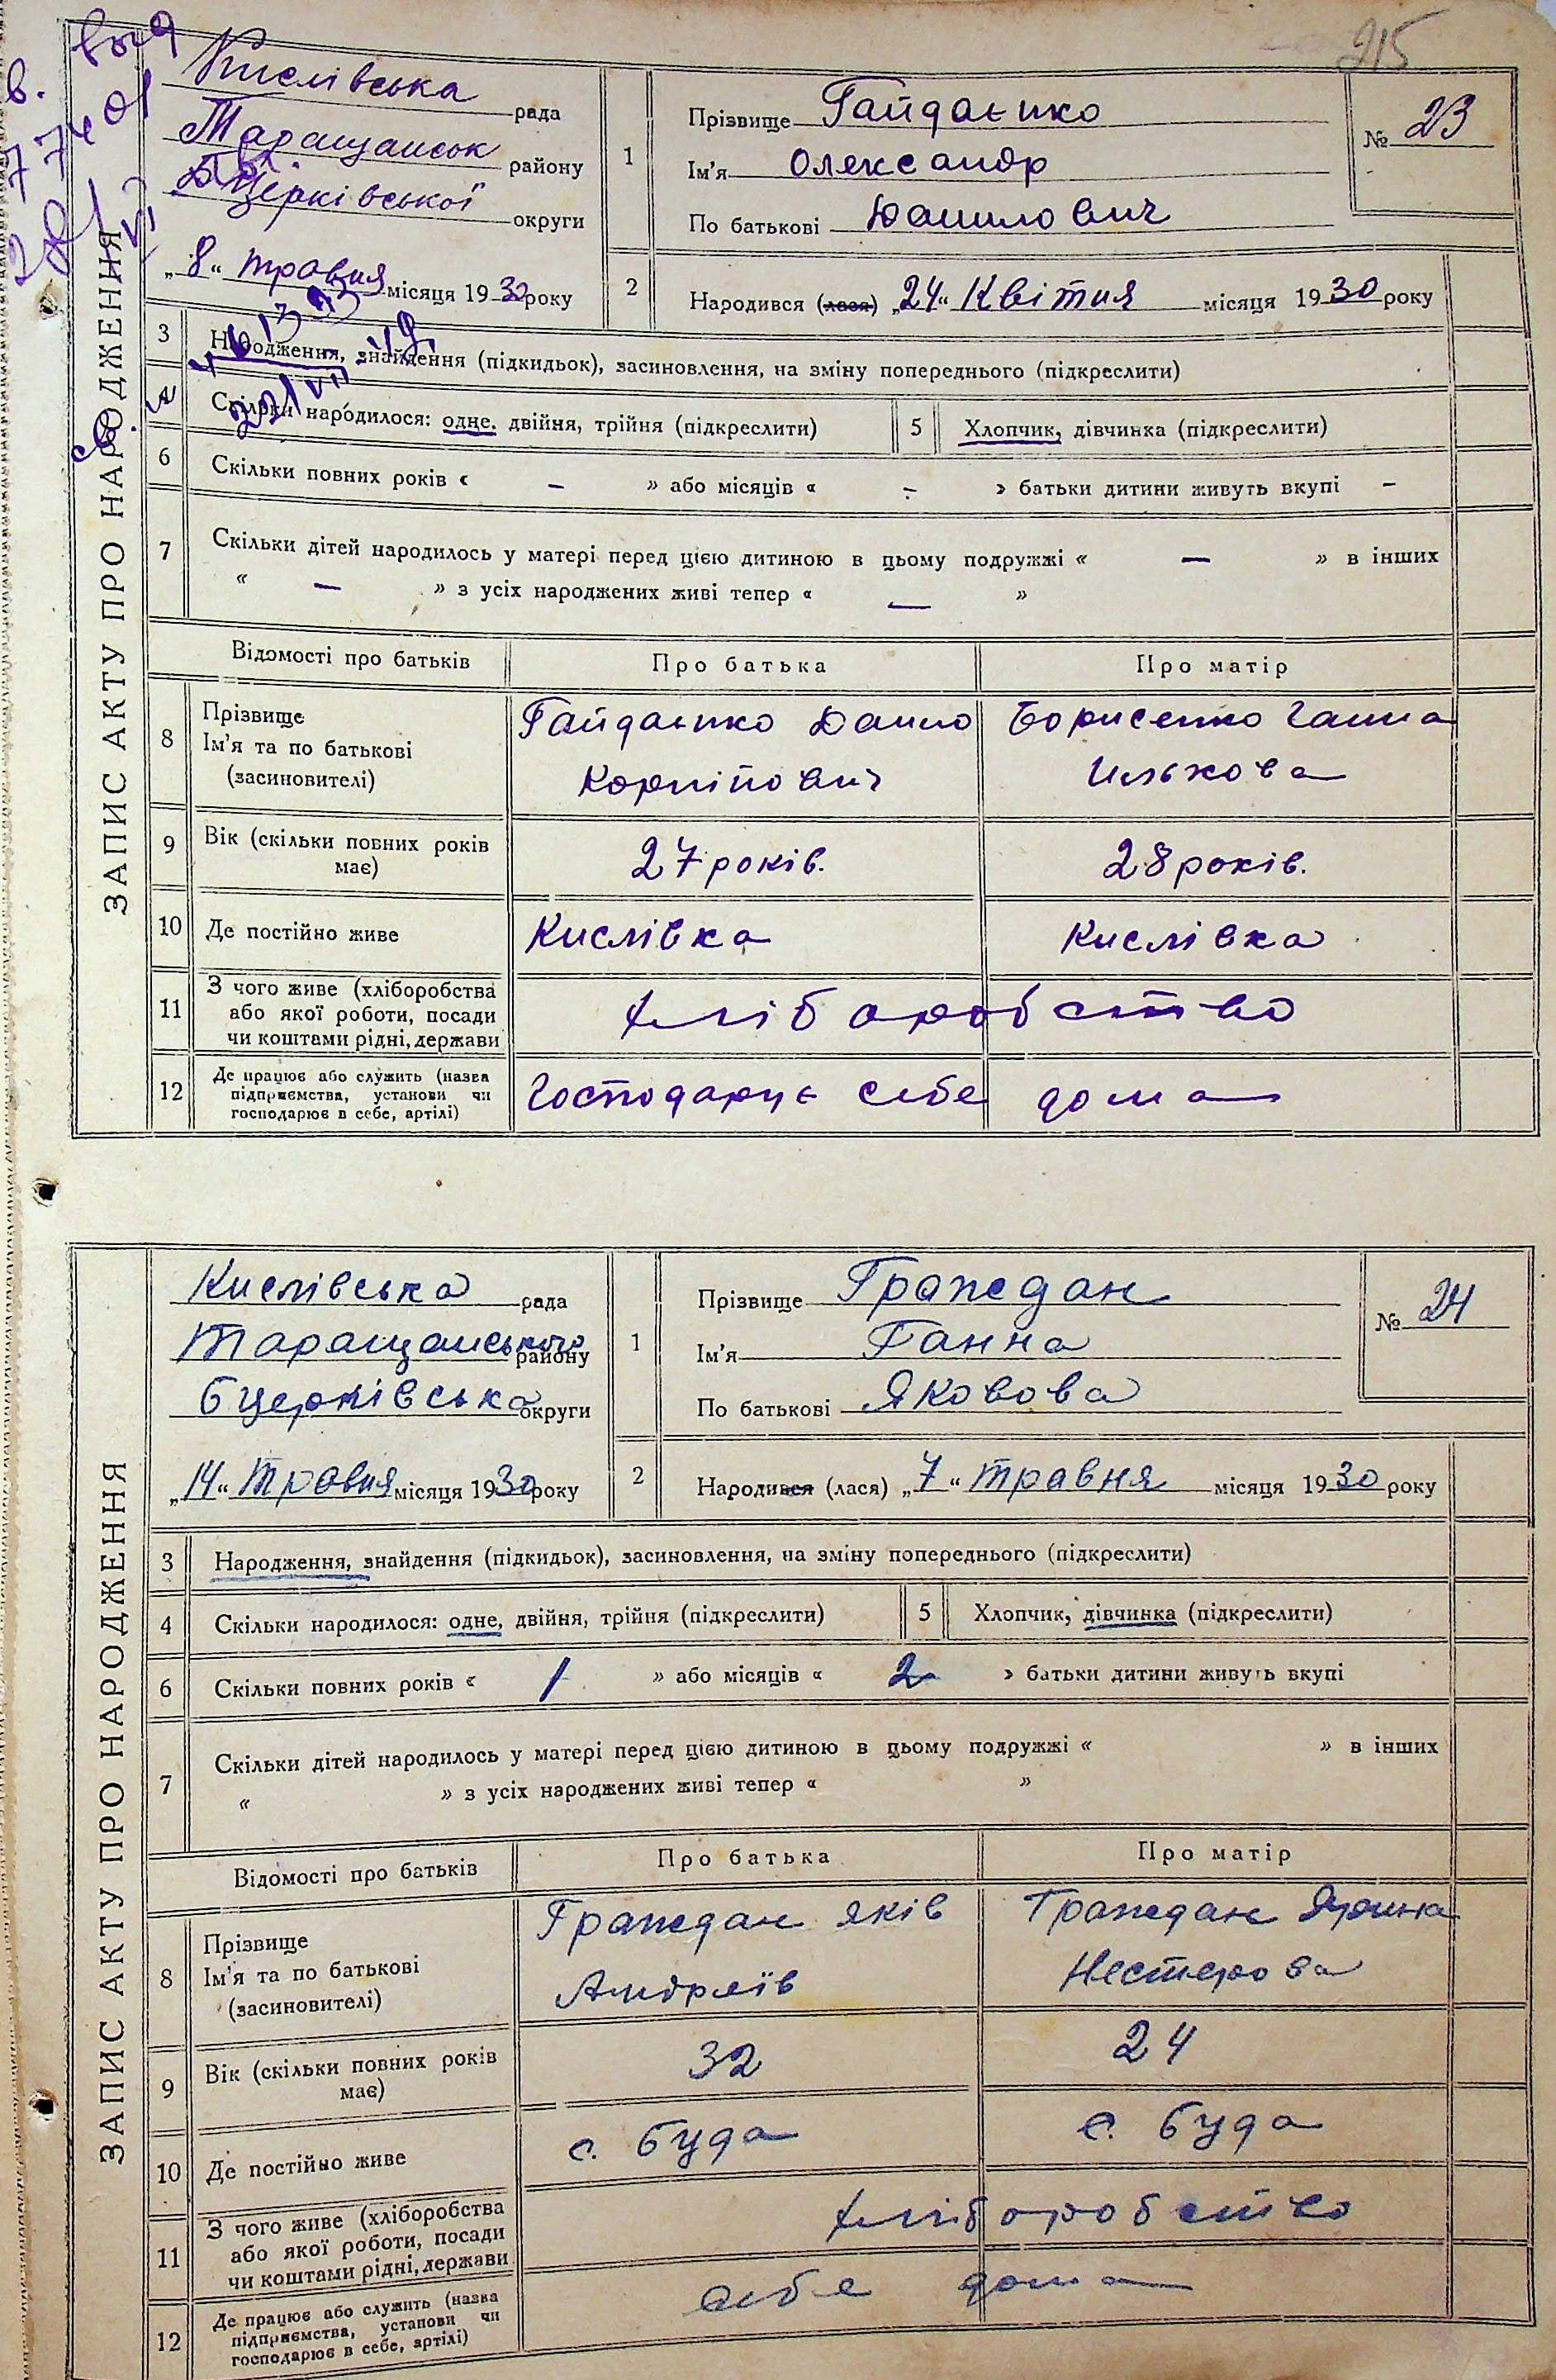 215
ЗАПИС АКТУ ПРО НАРОДЖЕННЯ
Кислівська рада
Таращанськ району
Б Церківської округи
„8“ травня місяця 1930 року
1
Прізвище Гайдаєнко
Ім'я Олександр
По батькові Данилович
№ 23
2
Народився (лася) „24“ Квітня місяця 1930 року
3 Народження, знайдення (підкидьок), засиновлення, на зміну попереднього (підкреслити)
4 Скільки народилося: одне, двійня, трійня (підкреслити) 5 Хлопчик, дівчинка (підкреслити)
6 Скільки повних років « – » або місяців « – » батьки дитини живуть вкупі –
7 Скільки дітей народилось у матері перед цією дитиною в цьому подружжі « — » в інших
« — » з усіх народжених живі тепер « — »
Відомості про батьків Про батька Про матір
8 Прізвище
Ім'я та по батькові
(засиновителі)
Гайдаєнко Данило
Корнійович
Борисенко Ганна
Илькова
9 Вік (скільки повних років
має)
27 років.
28 років.
10 Де постійно живе Кислівка Кислівка
11 З чого живе (хліборобства
або якої роботи, посади
чи коштами рідні, держави
хліборобство
12 Де працює або служить (назва
підприємства, установи чи
господарює в себе, артілі)
Господарує себе дома
ЗАПИС АКТУ ПРО НАРОДЖЕННЯ
Кислівська рада
Таращанського району
Бцерківська округи
„14“ Травня місяця 1930 року
1
Прізвище Граждан
Ім'я Ганна
По батькові Яковова
№ 24
2
Народився (лася) „7“ травня місяця 1930 року
3 Народження, знайдення (підкидьок), засиновлення, на зміну попереднього (підкреслити)
4 Скільки народилося: одне, двійня, трійня (підкреслити) 5 Хлопчик, дівчинка (підкреслити)
6 Скільки повних років « 1 » або місяців « 2 » батьки дитини живуть вкупі
7 Скільки дітей народилось у матері перед цією дитиною в цьому подружжі « » в інших
« » з усіх народжених живі тепер « »
Відомості про батьків Про батька Про матір
8 Прізвище
Ім'я та по батькові
(засиновителі)
Граждан Яків
Андреїв
Граждан Ярина
Нестерова
9 Вік (скільки повних років
має)
32
24
10 Де постійно живе с. Буда с. Буда
11 З чого живе (хліборобства
або якої роботи, посади
чи коштами рідні, держави
хліборобство
12 Де працює або служить (назва
підприємства, установи чи
господарює в себе, артілі)
себе дома